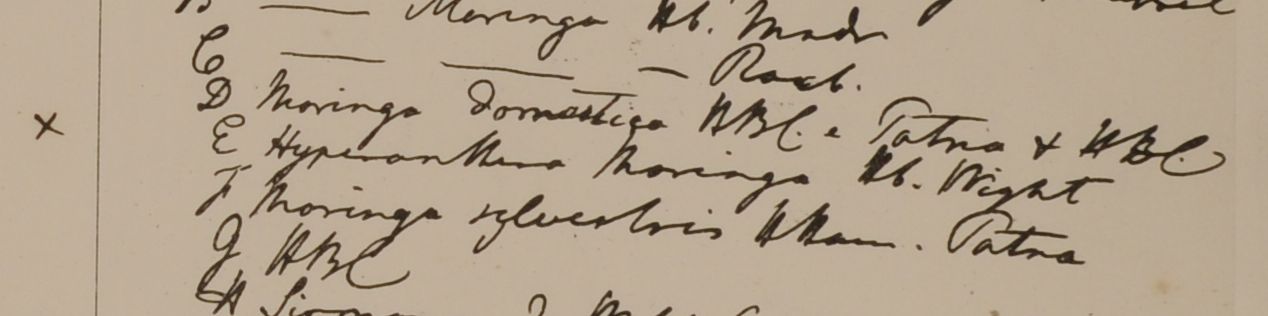 B —— Moringa Hb. Madr
C —— —— — Roxb.
D Moringa domestica HBC. e Patna & HBC
E Hyperanthera Moringa Hb. Wight
F Moringa sylvestris HHam. Patna
G HBC
H